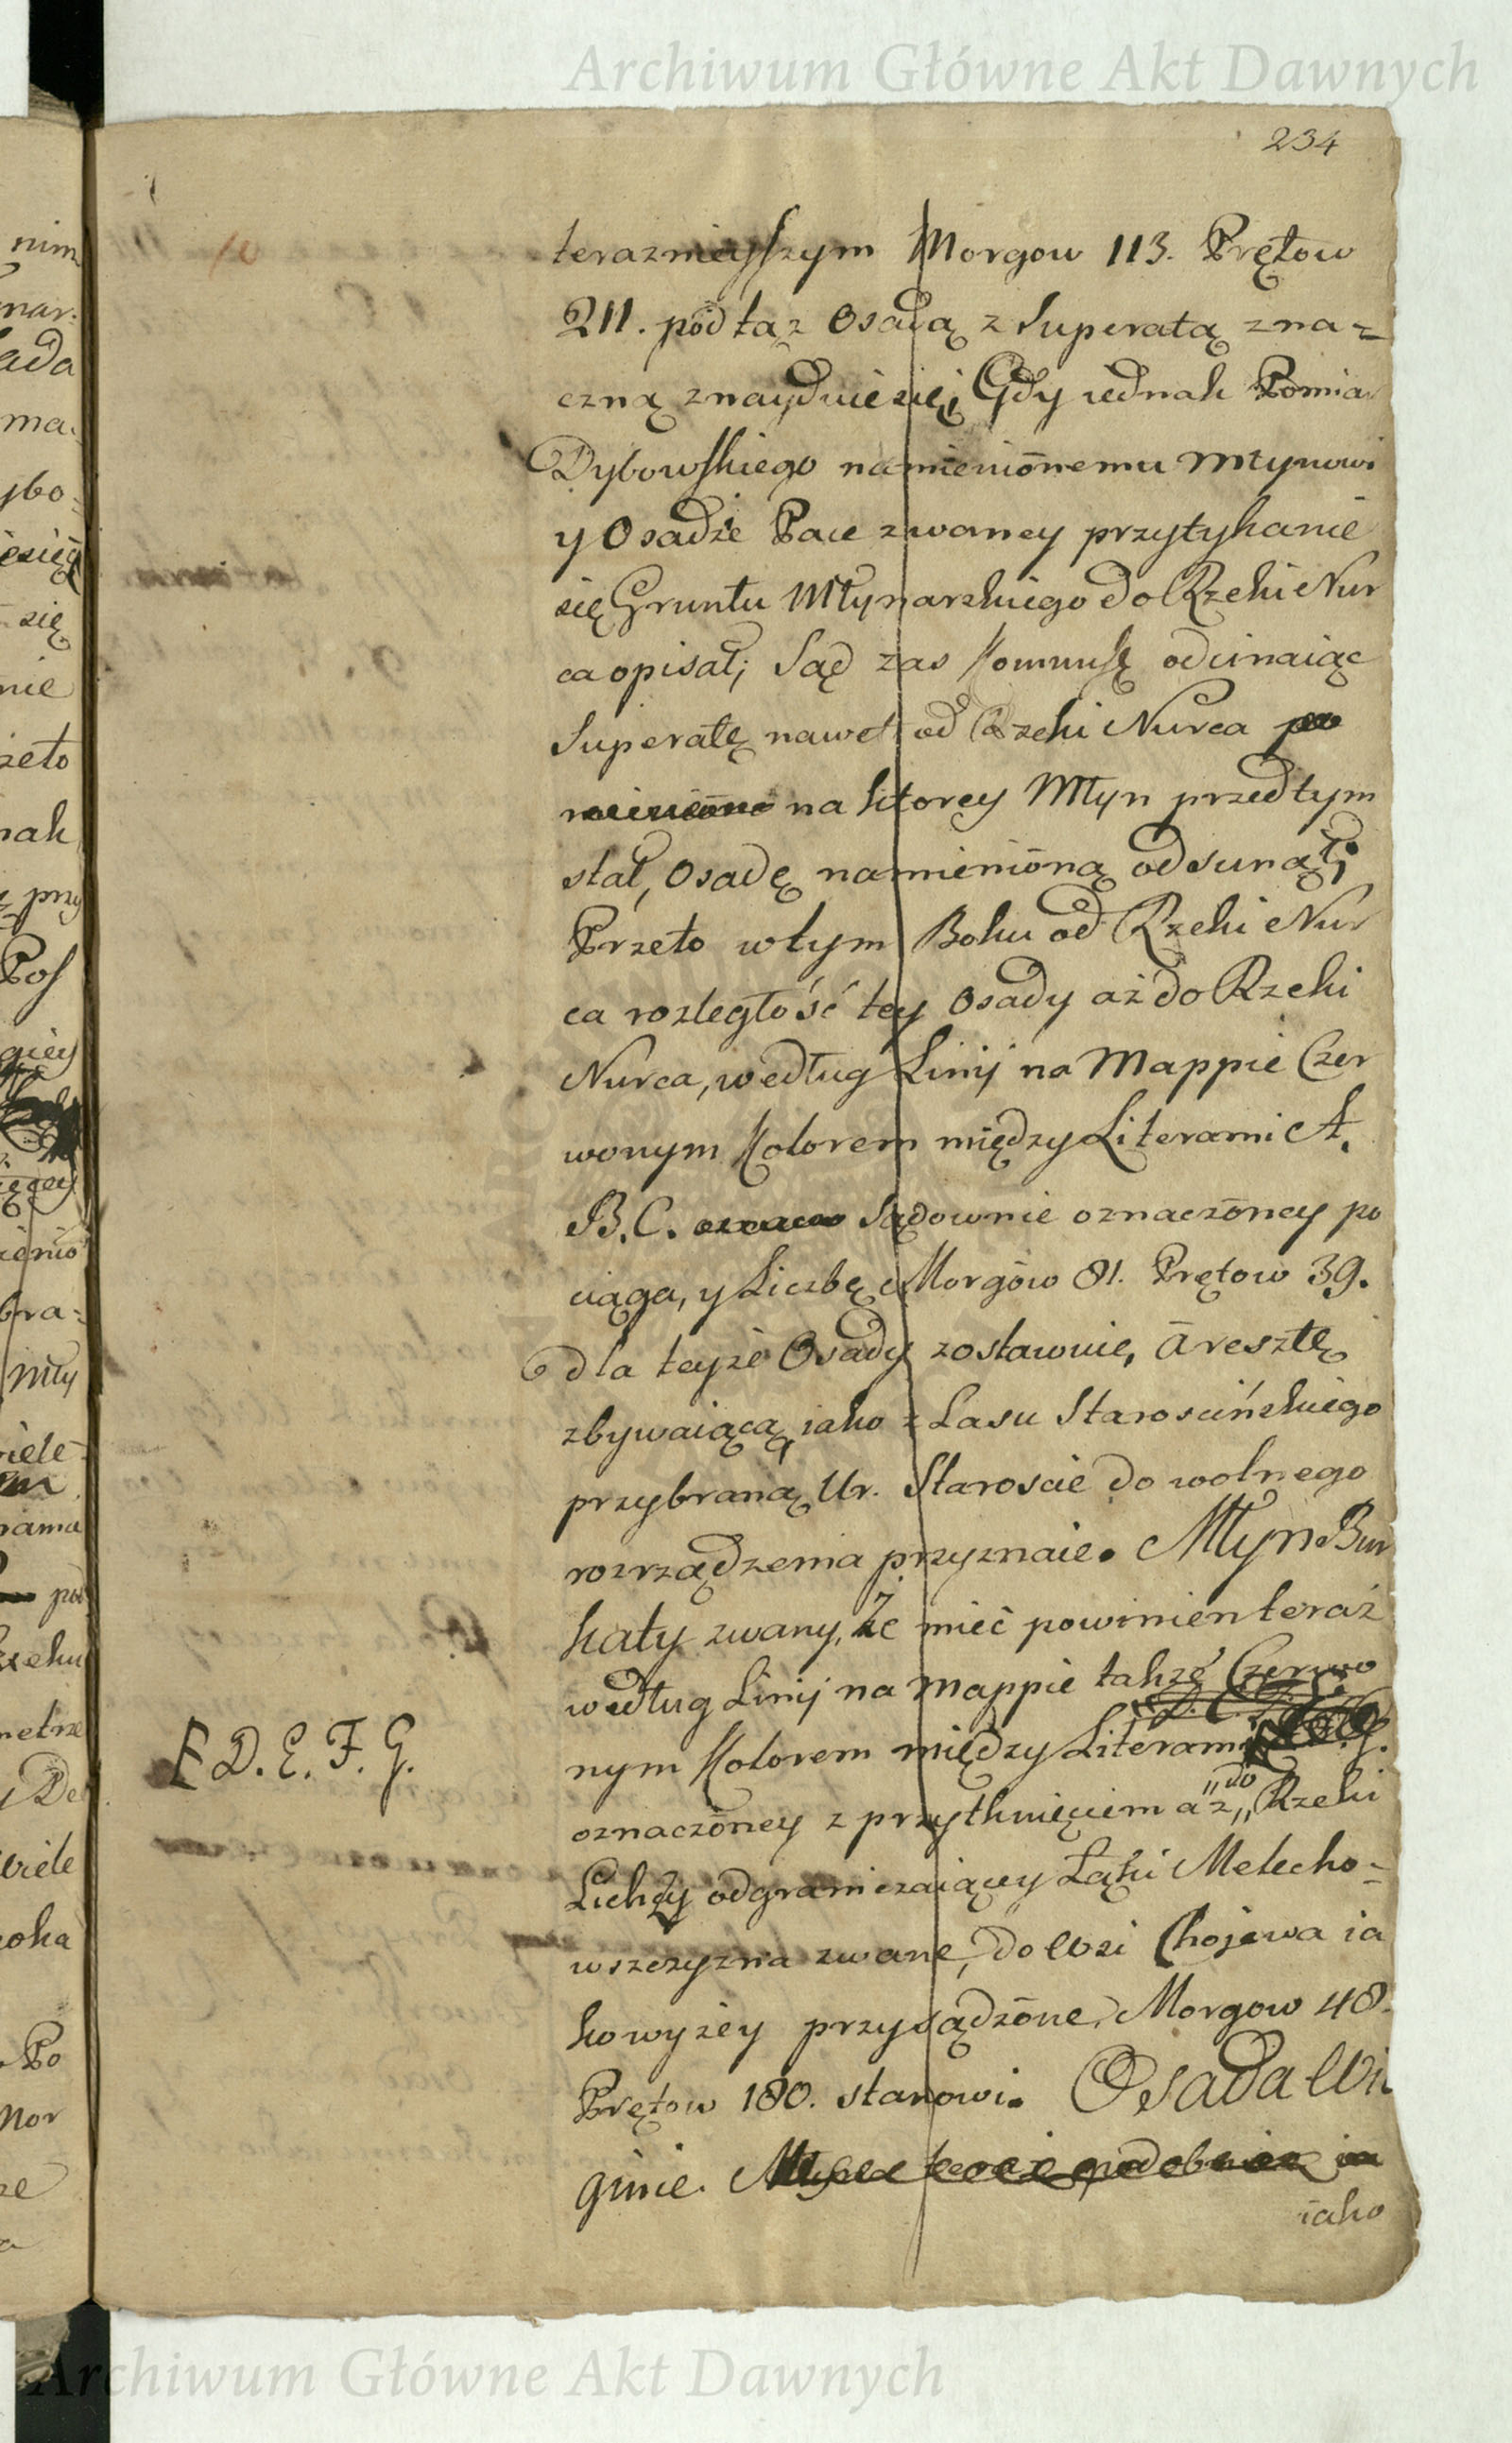 Archiwum Główne Akt Dawnych
234
terazniejszym Morgow 113. Prętow
211. pod tąz Osadą z Superatą zna=
czną znayduie się; Gdy iednak Pomiar
Dybowskiego namienionemu Młynowi
y Osadzie Pace zwaney przytykanie
się Gruntu Młynarskiego do Rzeki Nur
ca opisał; Sąd zas Kommissę odcinaiąc
Superatę nawet od Rzeki Nurca
na ktorey Młyn przedtym
stał, Osadę namienioną odsunął;
Przeto w tym Boku od Rzeki Nur
ca rozległość tey Osady aż do Rzeki
Nurca, według Linij na Mappie Czer
wonym Kolorem między Literami A.
B. C. Sądownie oznaczoney po
ciąga, y Liczbę Morgow 81. Prętow 39.
dla teyże Osady zostawuie, a resztę
zbywaiącą, iako z Lasu Starościńskiego
przybraną Ur. Staroscie do wolnego
rozrządzenia przyznaie. Młyn Bur
katy zwany, że mieć powinien teraż
według Linij na Mappie także Czerwo
nym Kolorem między Literami
E D. E. F. G.
oznaczoney z przytknięciem aż „do„ Rzeki
odgraniczaiący Łąki Melecho=
wszczyzna zwane, do Wsi Chojewa ia
ko wyżey przysądzone, Morgow 48.
Prętow 180. stanowi. Osada Wi
ginie.
iako
nim
mar=
ada
ma
się
nie
zeto
nak
Pos
bra=
Mły
wiele
pod
wiele
Po
Mor
ze
Archiwum Główne Akt Dawnych